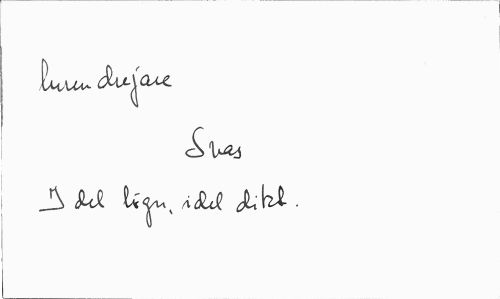 lurendrejare
Svas
Idel lögn, idel dikt.